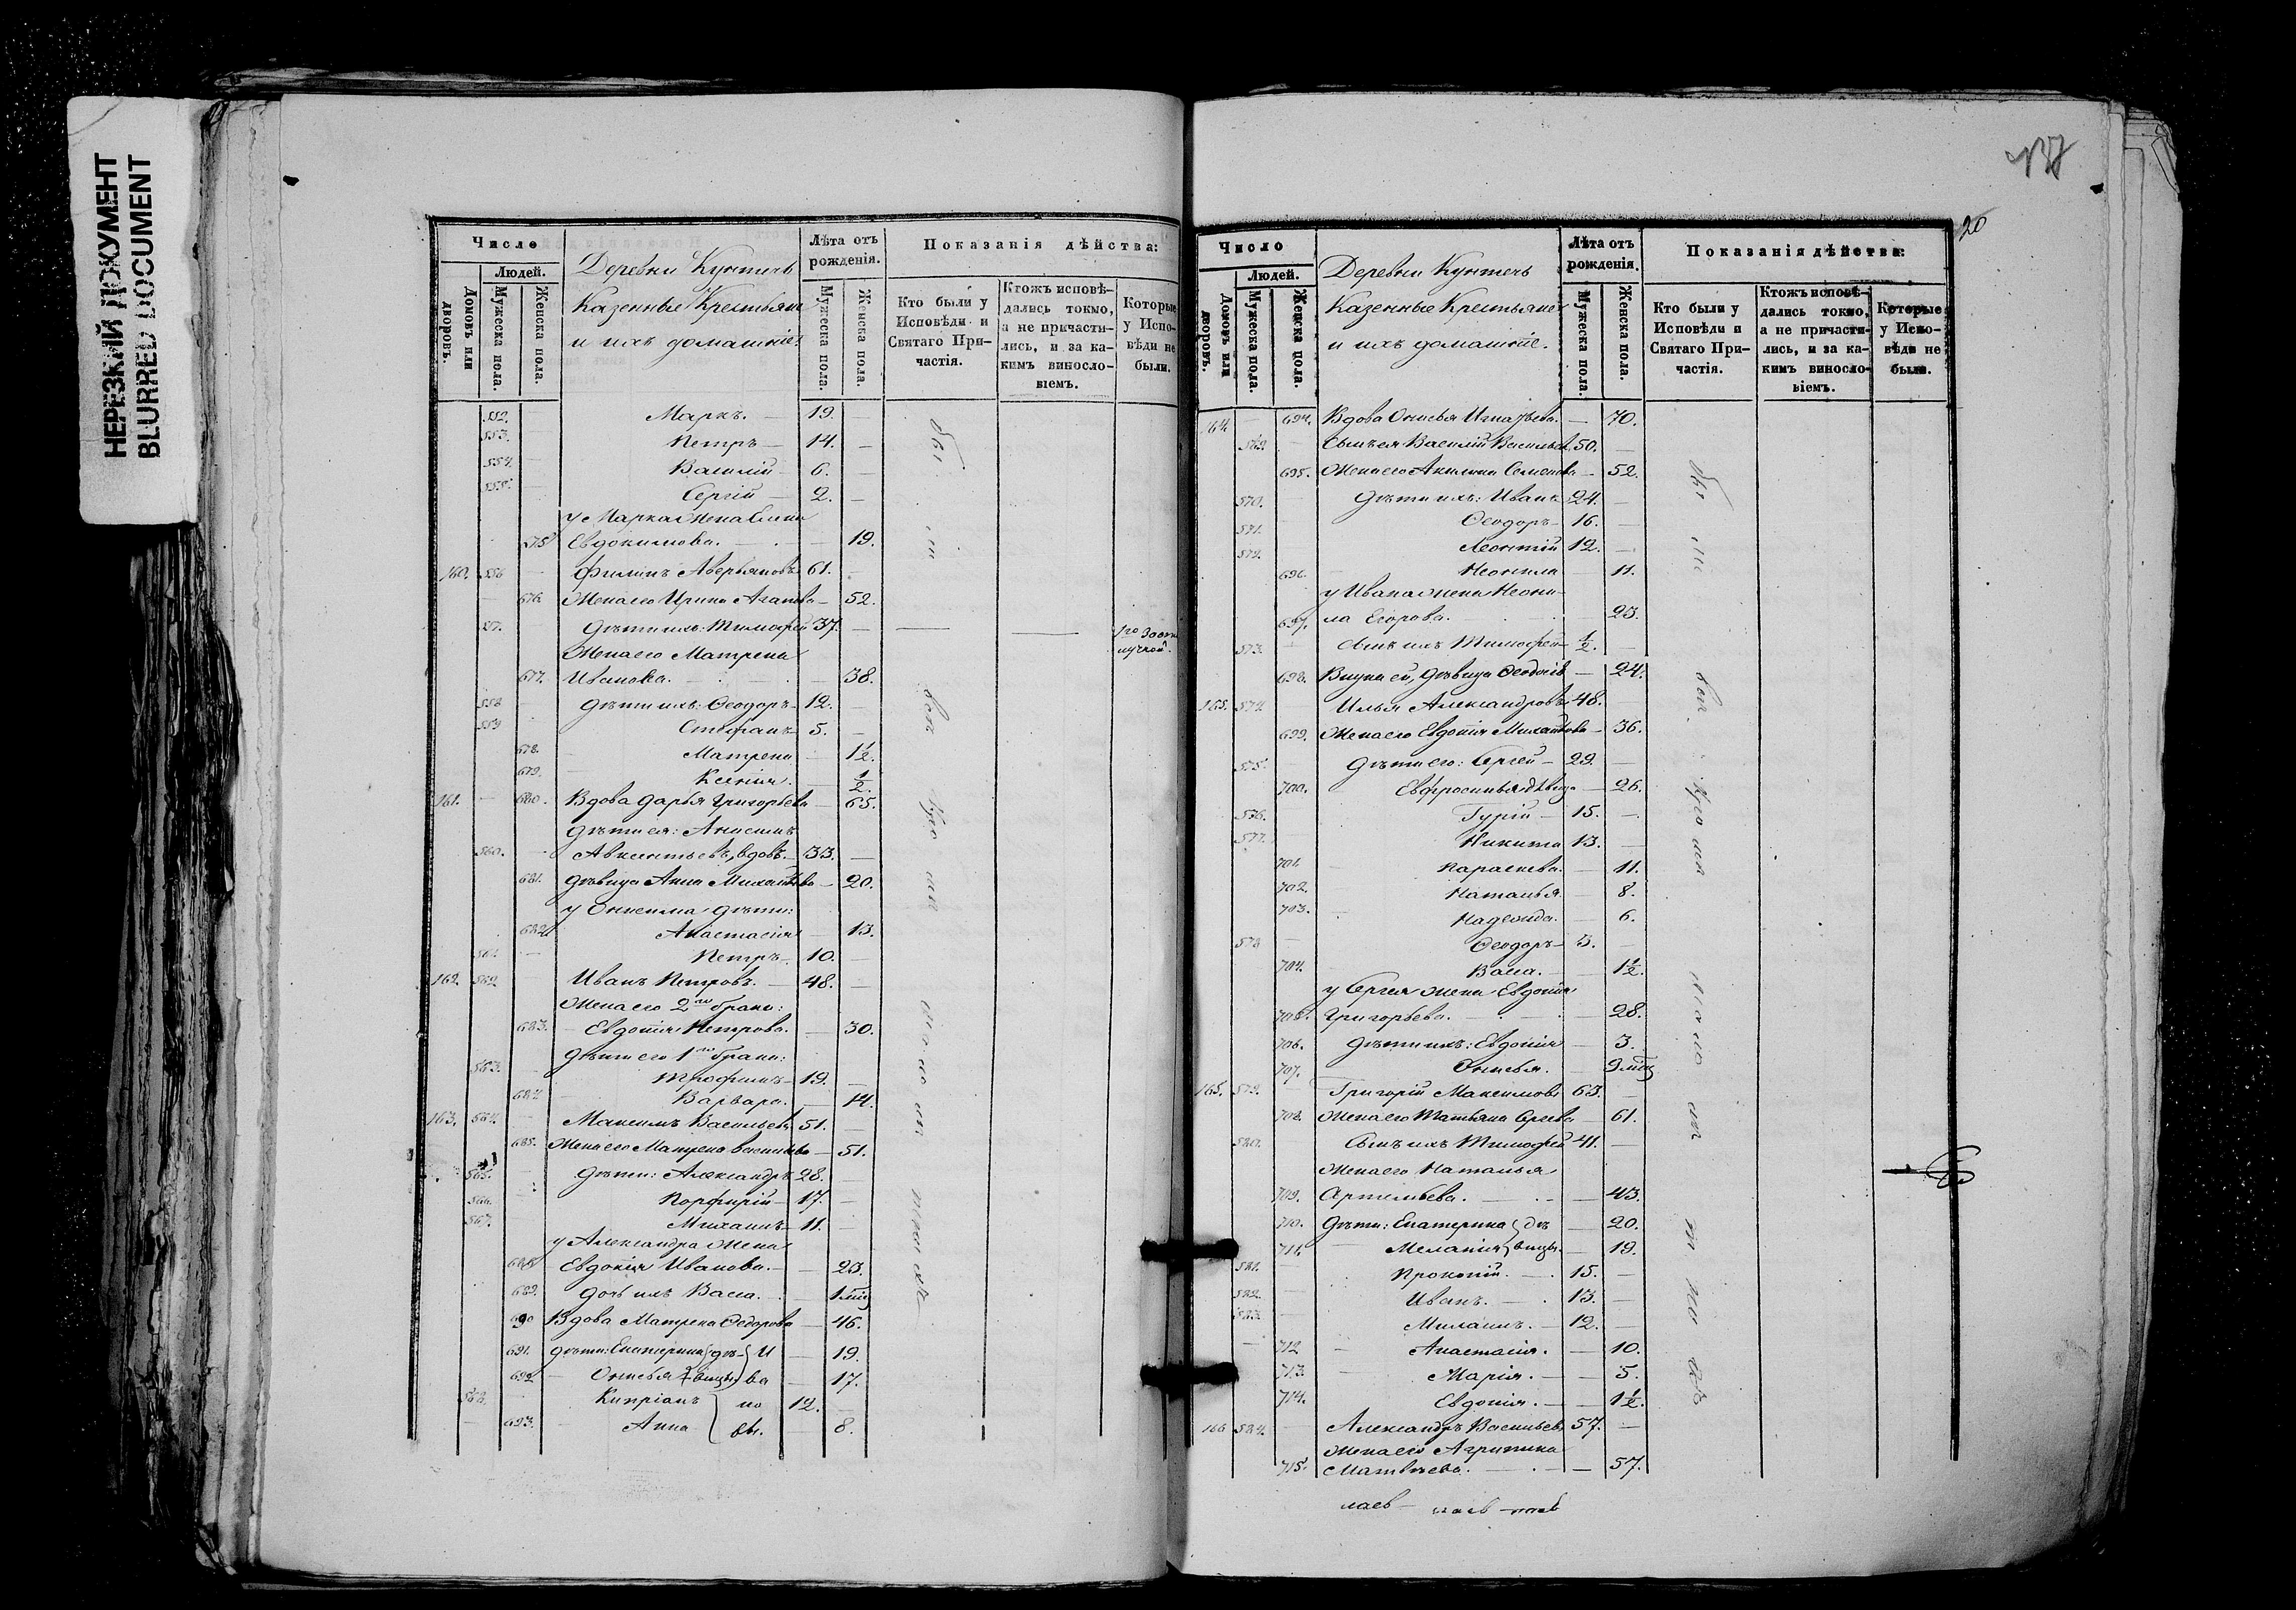 НЕРЕЗКИЙ ДОКУМЕНТ
BLURRED DOCUMENT
Число
Людей.
Домовъ или дворовъ.
Мужеска пола.
Женска пола.
Деревни Кунтечь
Казенные Крестьяне
и ихъ домашніе.
Лѣта отъ рожденія.
Мужеска пола.
Женска пола.
Показанія дѣйства:
Кто были у Исповѣди и Святаго Причастія.
Ктожъ исповѣдались токмо, а не причастились, и за какимъ винословіемъ.
Которые у Исповѣди не были.
552. Маркъ. — 19. —
553. Петръ — 14. —
554. Василій — 6. —
555. Сергій — 2. —
у Марка жена
675 Евдокимова. — 19.
160. 556 Филипъ Аверьяновъ 61. —
676. Жена его Ирина Агапова — 52.
557. Дѣти ихъ: Тимофей 37. —
Жена его Матрена
677. Иванова. — 38.
558 Дѣти ихъ: Ѳеодоръ — 12. —
559 Стефанъ — 5. —
678. Матрена — 1½.
679. Ксенія. ½.
161. — 680. Вдова Дарья Григорьева — 65.
Дѣти ея: Анисимъ
560. Авксентьевъ, вдовъ. — 33. —
681. Дѣвица Анна Михайлова — 20.
у Онисима дѣти:
682. Анастасія — 13.
561. Петръ — 10. —
162. 562. Иванъ Петровъ. — 48. —
Жена его 2го брака:
683. Евдокія Петрова. — 30.
Дѣти его 1го брака:
563. Трофимъ — 19. —
684 Варвара. — 14.
163. 564. Максимъ Васильевъ 51. —
685. Жена его Матрена Васильева — 51.
565. Дѣти: Александръ 28. —
566. Порфирій — 17. —
567. Михаилъ — 11. —
у Александра жена
688 Евдокія Иванова. — 23.
689. Дочь ихъ Васса. — 1 мѣц
90 Вдова Матрена Ѳедорова — 46.
691. Дѣти: Екатерина дѣ- И 19.
692 Онисья вицы ва — 17.
568. Кипріанъ но 12. —
693. Анна вы. — 8.
437
20
Число
Людей.
Домовъ или дворовъ.
Мужеска пола.
Женска пола.
Деревни Кунтечь
Казенные Крестьяне
и ихъ домашніе.
Лѣта отъ рожденія.
Мужеска пола.
Женска пола.
Показанія дѣйства:
Кто были у Исповѣди и Святаго Причастія.
Ктожъ исповѣдались токмо, а не причастились, и за какимъ винословіемъ.
Которые у Исповѣди не были.
164 — 694. Вдова Онисья Игнатьева. — 70.
569. Сынъ ея Василій Васильевъ 50. —
695. Жена его Акилина Семенова — 52.
570. Дѣти ихъ: Иванъ 24. —
571. Ѳеодоръ — 16. —
572. Леонтій 12. —
696. Неонила 11.
у Ивана жена Неони-
697. ла Егорова. 23.
573. Сынъ ихъ Тимофей — ½. —
698. Внука ей, дѣвица — 24.
165. 574 Илья Александровъ 48. —
699. Жена его Евдокія Михайлова — 36.
575. Дѣти его: Сергей — 29. —
700. Евфросинья дѣвица — 26.
576. Гурій — 15. —
577. Никита 13. —
701. Параскева. — 11.
702. Наталья — 8.
703. Надежда. — 6.
578 Ѳеодоръ — 3. —
704. Васса. — 1½.
у Сергея жена Евдокія
705. Григорьева. — 28.
706. Дѣти ихъ: Евдокія — 3.
707. Онисья. — 9 мѣц
165. 579. Григорій Максимовъ 63. —
708. Жена его Татьяна Сергеева — 61.
580. Сынъ ихъ Тимофей 41. —
Жена его Наталья
709. Артемьева. — 43.
710. Дѣти: Екатерина дѣ — 20.
711. Меланія вицы. — 19.
581. Прокопій. — 15. —
582. Иванъ. — 13. —
583 Михаилъ. — 12. —
712 Анастасія. — 10.
713. Марія. — 5.
714. Евдокія. — 1½.
166 584. Александръ Васильевъ 57. —
Жена его Агрипина
715. Матвѣева. — 57.